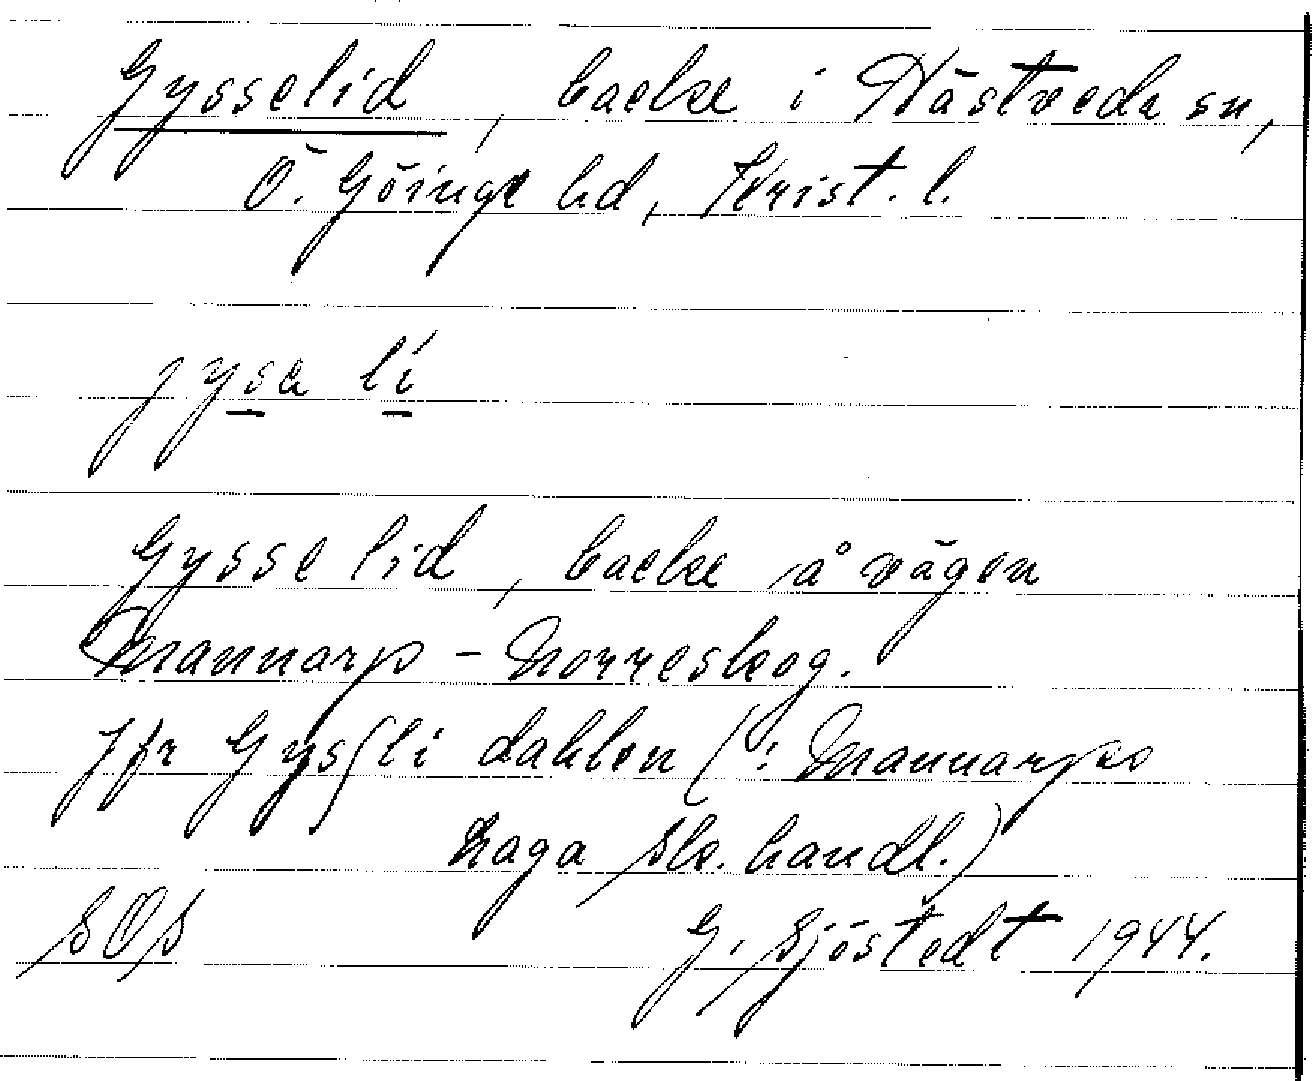 Gysselid, backe i Hästveda sn,
Ö. Göinge hd, Krist. l.
jysa lí
Gysse lid, backe å vägen
Mannarp - Norreskog.
Jfr Gysſli dahlen (: Mannarps
haga sks. handl.)
SOS G. Sjöstedt 1944.